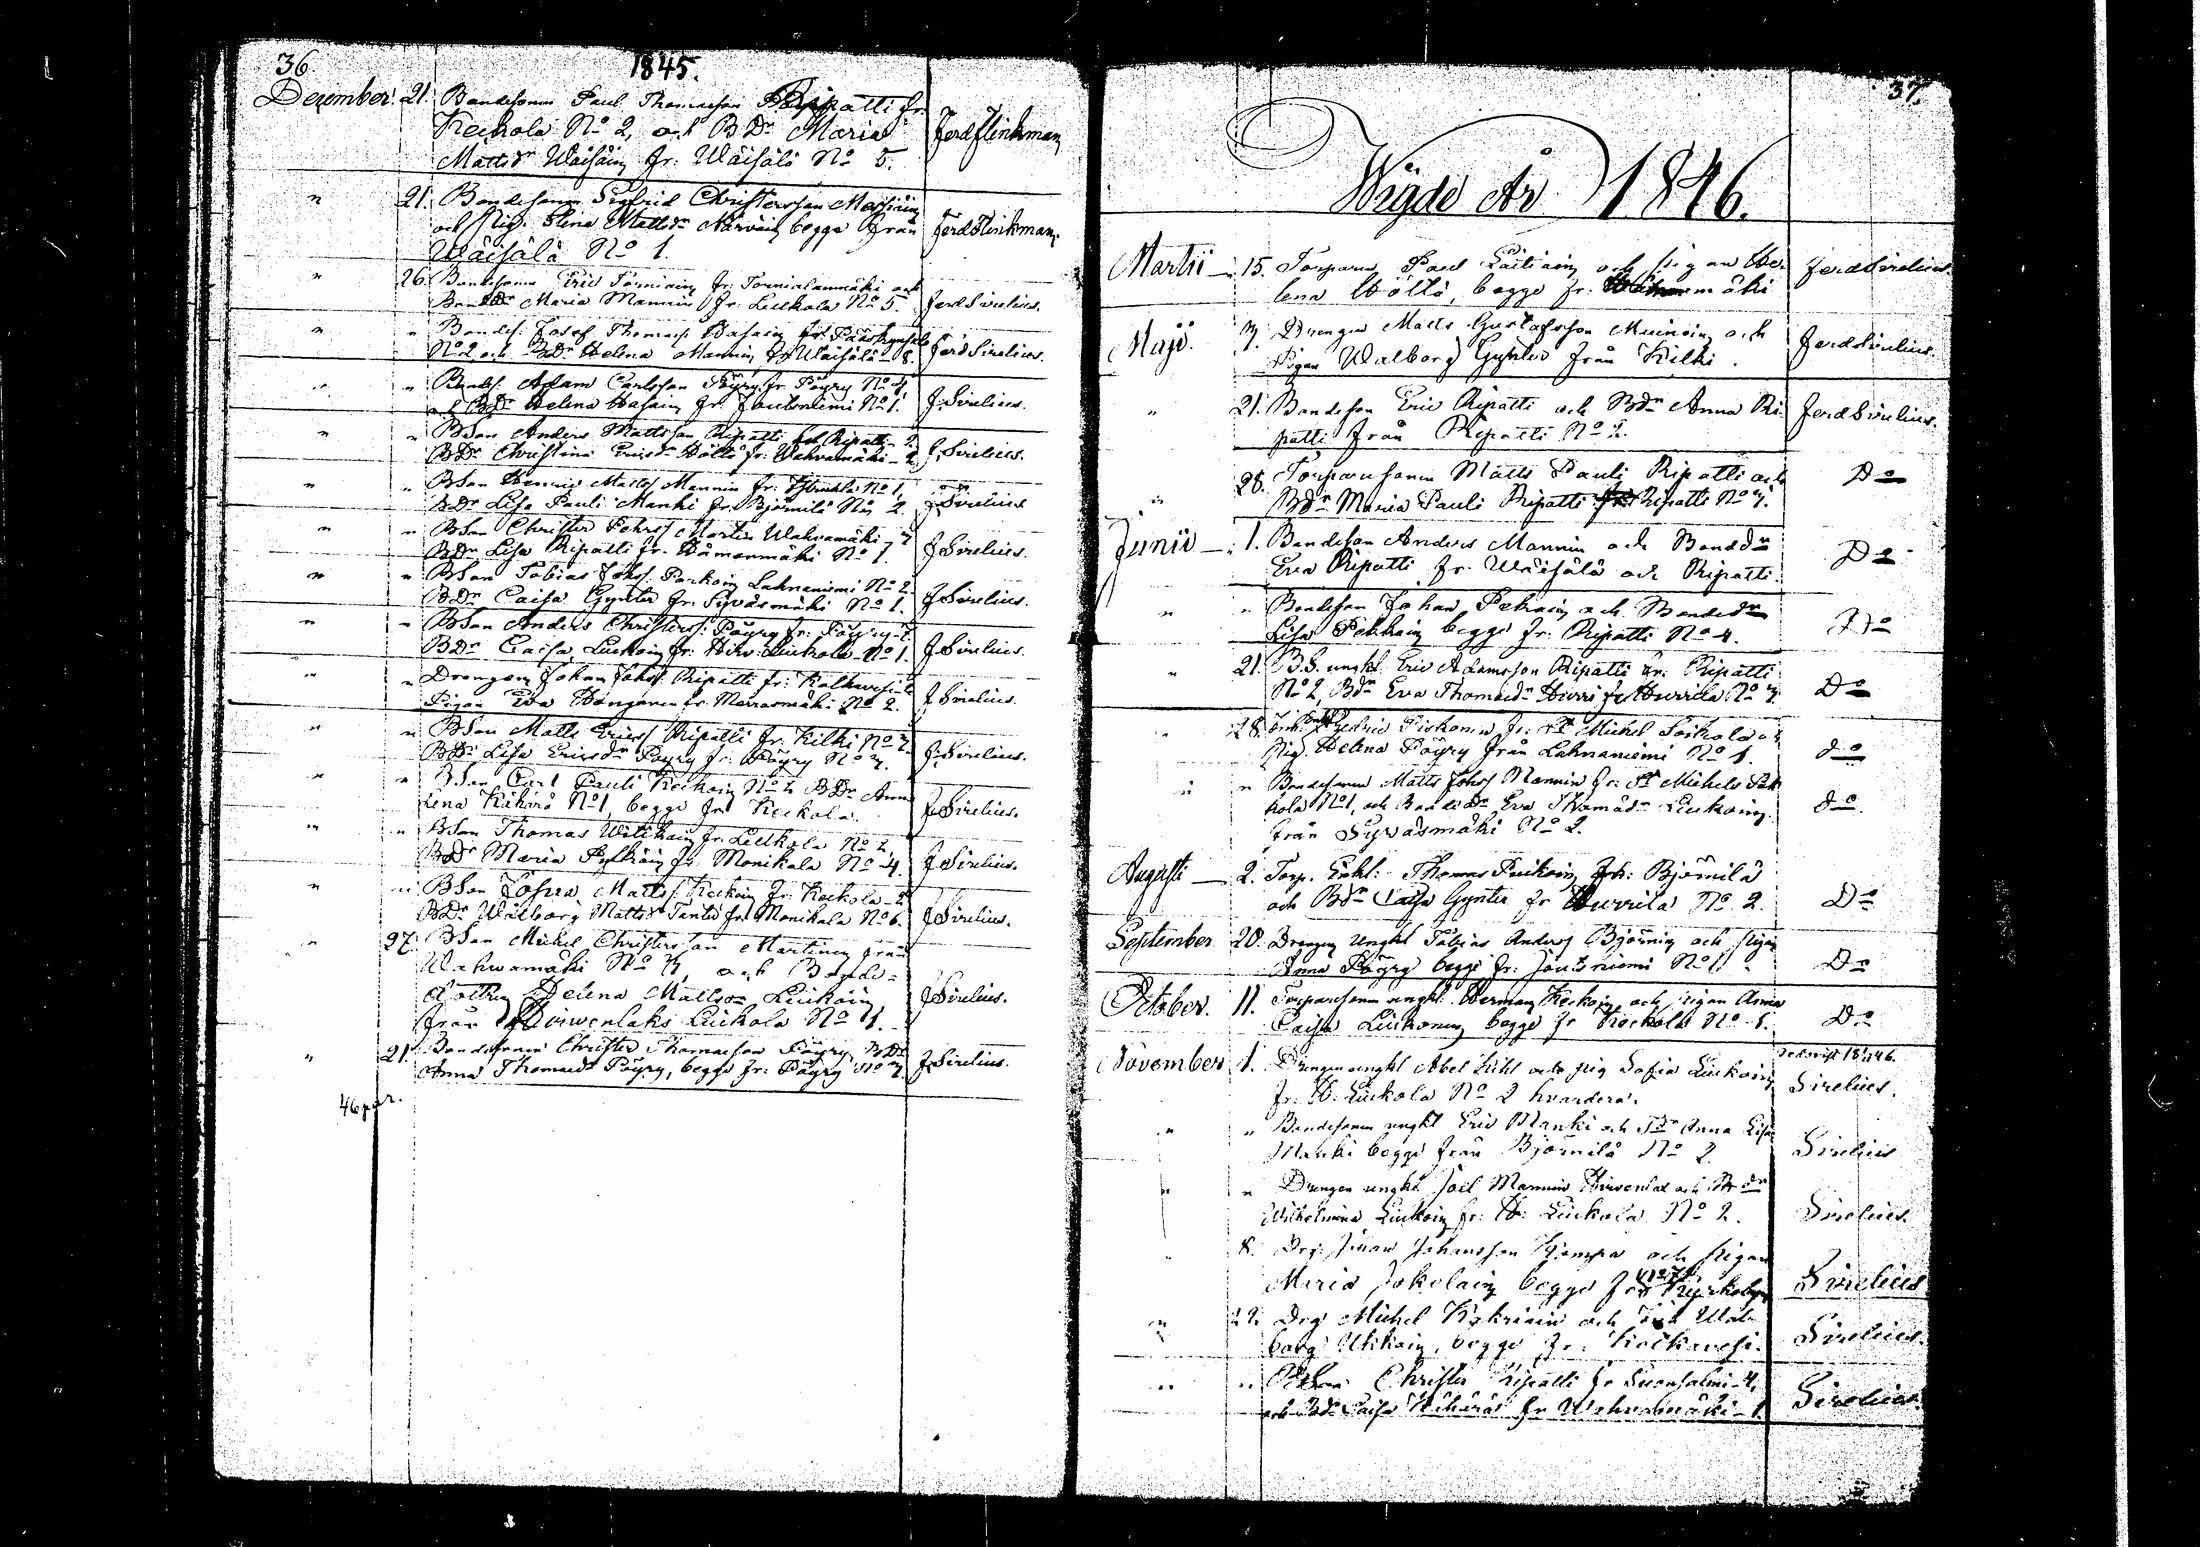 36.
1845.
December. 21. Bondesonen Paul Thomasson Ripatti fr.
Keckola No 2, och BDr Maria Ferd Flinkman
Mattsdr Wäisäin fr: Wäisälä No 5.
" 21. Bondesonen Sigfrid Christersson
och pig. Elena Mattsdr Närväin begge från Ferd Flinkman.
Wäisälä No 1.
" 26. Bondesonen Eric Torniain fr. och
BondeDr Maria Mannin fr. Luckola No 5. Ferd Sirelius.
" " Bondes. Josef Thomass. Hasain fr.
No 2 och BDr Helena Mannin fr Wäisälä 8. Ferd Sirelius.
" " Bondes. Adam Carlsson Pöyry fr. Pöyry No 4
och BDr Helena Hasain fr. Joutsniemi No 1. F. Sirelius.
" " BSon Anders Mattsson Ripatti Ripatti 2.
BDr Christina Ericsdr Höltä fr: Wahvamäki - 2. F. Sirelius.
" " BSon Mattss Mannin fr. No 1,
BDr Lisa Pauli Manki fr. Björnilä No 2 F. Sirelius
" " BSon Christer Johss Martin Wahvamäki - 7
BDr Lisa Ripatti fr. Hämenmäki No 1. F. Sirelius.
" " BSon Tobias Johss. Parkoin Lahnaniemi No 2.
BDr Caisa Gynter fr. Syväsmäki No 1. F. Sirelius.
" " BSon Anders Christerss: Pöyry fr: Pöyry-7.
BDr Caisa Luckoin fr: Hirv: Luckola No 1. F. Sirelius.
" " Drengen Johan Johss. Ripatti fr:
Pigan Eva fr. Marrasmäki No 2. F. Sirelius.
" " BSon Matts Ericss Ripatti fr. Kilki No 7.
BDr Lisa Ericsdr Pöyry fr: Pöyry No 7. F. Sirelius.
" " BSon Carl Pauli Keckoin No 2 BDr Anna
Lena Kihärä No 1, begge fr Keckola. F. Sirelius.
" " BSon Thomas fr. Luckola No 2
BDr Maria fr. Monikala No 4. F. Sirelius.
" " BSon Mattss Keckoin fr. Keckola - 2
BDr Walborg Mattsdr Tanto fr. Monikala No 6. F. Sirelius.
" 27. BSon Michel Christersson Martinen från
Wahwamäki No 7, och Bonde-
dottren Helena Mattsdr Luckoin F. Sirelius.
från Hirwenlaks Luckola No 11.
" 21. Bondesonen Christer Thomasson Pöyry, BDr
Anna Thomasdr Pöyry, begge fr: Pöyry No 7. F. Sirelius.
46 par.
37.
Wigde År 1846.
Martii 15. Torparen Paul och pigan He-
lena Höltä, begge fr: mäki Ferd Sirelius.
Maji. 7. Drengen Matts Gustafsson Muinoin och
Pigan Walborg Gynter från Kilki. Ferd Sirelius.
" 21. Bondeson Eric Ripatti och BDr Anna Ri-
patti från Ripatti No 2. Ferd Sirelius.
" 28. Torparesonen Matts Pauli Ripatti och
BDr Maria Pauli Ripatti Ripatti No 7. Do
Junii 1. Bondeson Anders Mannin och BondeDr
Eva Ripatti fr. Wäisälä och Ripatti. Do
" " Bondeson Johan Pekkain och BondeDr
Lisa Pekkain begge fr: Ripatti No 4. Do
" 21. B.S. ungkl. Eric Adamsson Ripatti fr. Ripatti
No 2, BDr Eva Thomasdr Hurri fr Hurrila No 7. Do
" 28. Piskonen fr: St Michel Soikola och
Pig. Helena Pöyry från Lahnaniemi No 1. do
" " Bondesonen Matts Johss Mannin fr: St Michels
kola No 1, och BondeDr Eva Thomasdr Luckoin
från Syväsmäki No 2. do.
Augusti 2. Torp. Enkl: Thomas Björnilä
och BDr Caisa Gynter fr Hurrila No 2. Do
September 20. Drengen ungkl Tobias Anderss Björnin och pigan
Anna Pöyry begge fr: Joutsniemi No 1. Do
October. 11. Torparesonen ungkl. Herman Keckoin och pigan Anna
Caisa Luckonen begge fr Keckola No 1. Do
November 1. Drengen ungkl Abel och pig Sofia Luckoin
fr. H. Luckola No 2 hvardera. Sirelius.
" " Bondesonen ungkl Eric Manki och Anna Lisa
Manki begge från Björnilä No 2. Sirelius
" " Drengen ungkl Joel Mannin och
Wilhelmina Luckoin fr: H: Luckola No 2. Sirelius.
" 8. Drg. Johansson Kjempe och pigan
Maria Jokelain begge Sirelius
" 22. Drg Michel och Wal-
borg begge fr: Sirelius.
" " Christer Ripatti fr Suonsalmi-4,
och BDr Caisa Kihärä fr Wahvamäki-1 Sirelius.